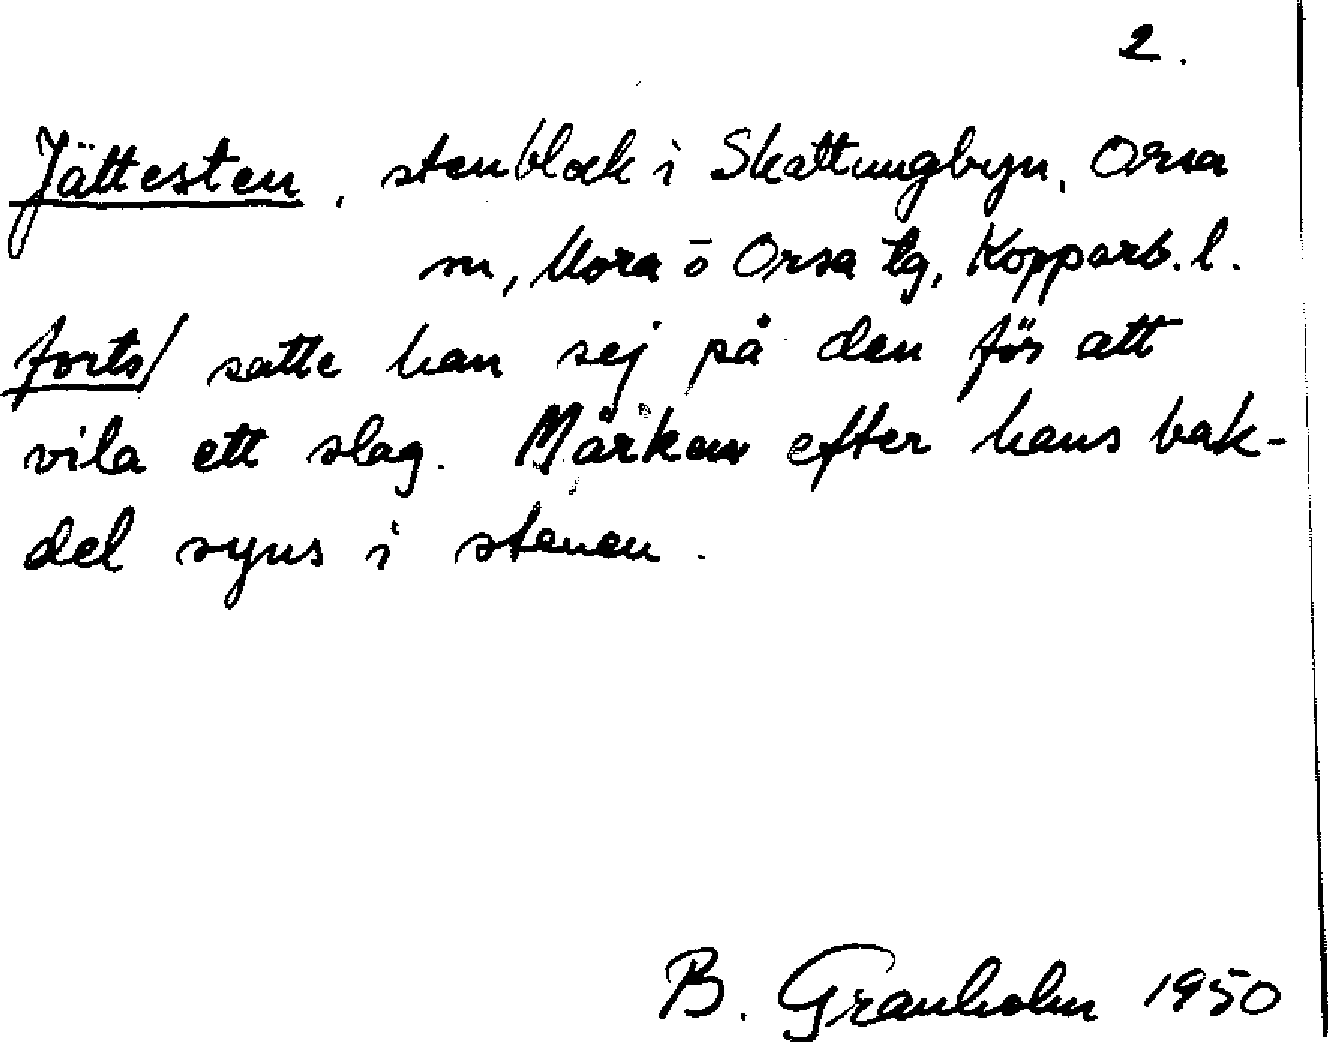 2.
Jättesten, stenblock i Skattungbyn, Orsa
sn, Mora o Orsa tg, Kopparb. l.
forts/ satte han sej på den för att
vila ett slag. Märken efter hans bak-
del syns i stenen.
B. Granholm 1950